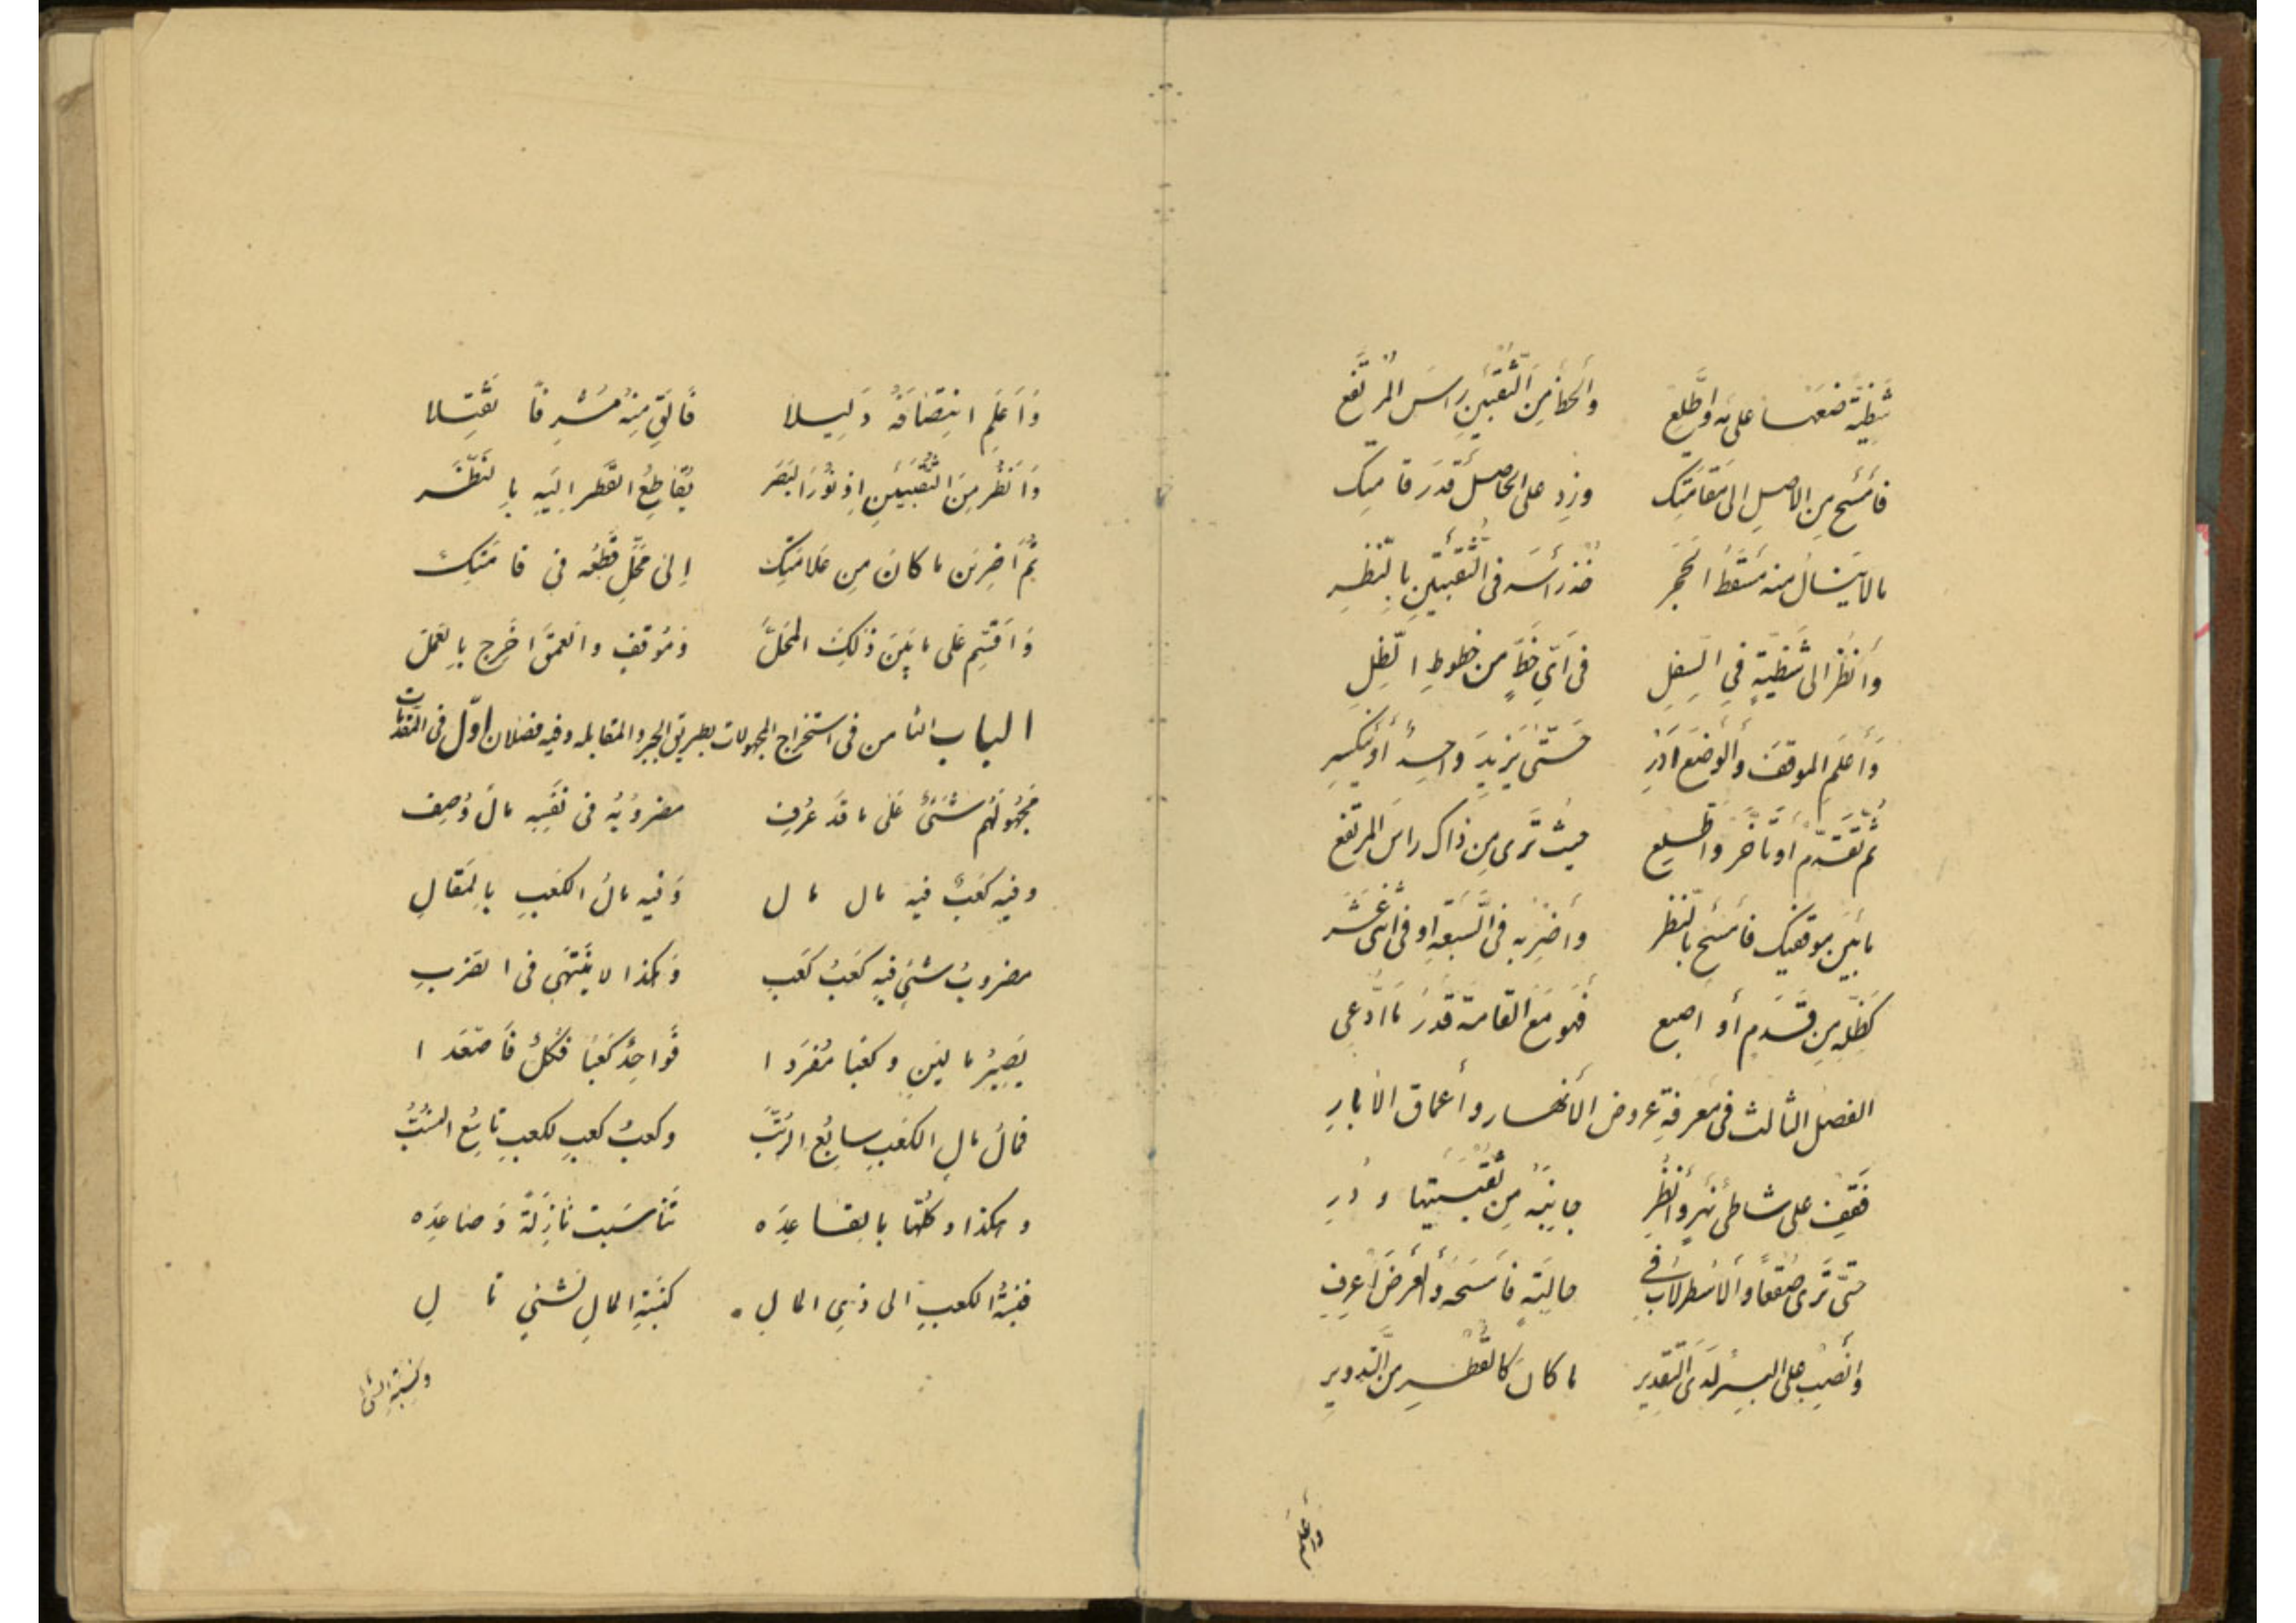 شظية ضعها على مه واطلع والحظ من الثقبين راس المرتفع
فامسح من الاصل الى مقامتك وزد على الحاصل قدر قامتك
مالاينال منه مسقط الحجر خذ رأسه فى الثقبتين بالنظر
وانظر الى شظية في السفل فى اى خط من خطوط الظل
وأعلم الموقف والوضع ادر حتى يزيد واحد أو ينكسر
ثم تقدم او تأخر واطلع حيث ترى من ذاك راس المرتفع
مابين موقفيك فامسح بالنظر وأضربه فى السبعة او فى اثنى عشر
كظله من قدم أو اصبع فهو مع القامة قدر ما ادعى
الفصل الثالث فى معرفة عروض الأنهار وأعماق الابار
فقف على شاطئ نهر وانظر جانبه من ثقبتيها ودر
حتى ترى صقعا والاسطرلاب في حاليته فامسحه والعرض اعرف
وانصب على البئر لدى التقدير ما كان كالقطر من التدوير
واعلم
وَاَعلم انتصافه دليلا فالق منه مشرفا ثقيلا
وانظر من الثقبين اذ نور البصر يقاطع القطر اليه بالنظر
ثم اضربن ما كان من علامتك الى محل قطعه فى قامتك
واقسم على مابين ذلك المحل وموقف والعمق اخرج بالعمل
الباب الثامن فى استخراج المجهولات بطريق الجبر والمقابله وفيه فصلان اوّل فى المقدمات
مجهولهم شئ على ما قد عرف مضروبه فى نفسه مال وصف
وفيه كعب فيه مال مال وفيه مال الكعب بالمقال
مضروب شئ فيه كعب كعب وهكذا لا ينتهى فى الضرب
يصير مالين وكعبا مفردا فواحد كعبا فكل فاصعدا
فمال مال الكعب سابع الرتب وكعب كعب لكعب تاسع
وهكذا وكلها بالقاعده تناسبت نازلة وصاعده
فنسبة الكعب الى ذى المال كنسبة المال لشئ تال
ونسبة الشئ